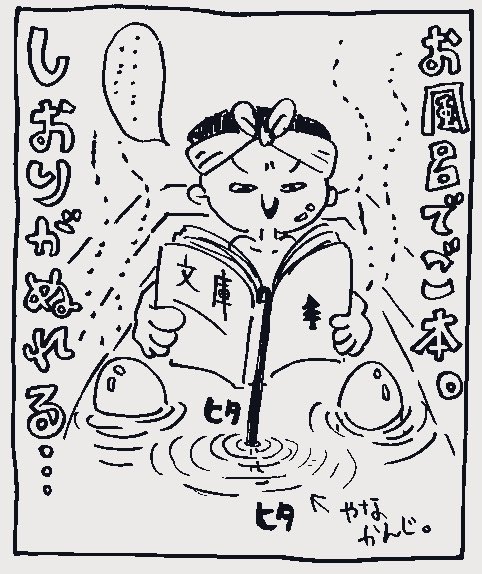 お風呂でご本。
しおりがぬれる・・・
文庫
ヒタ
ヒタ
やな
かんじ。